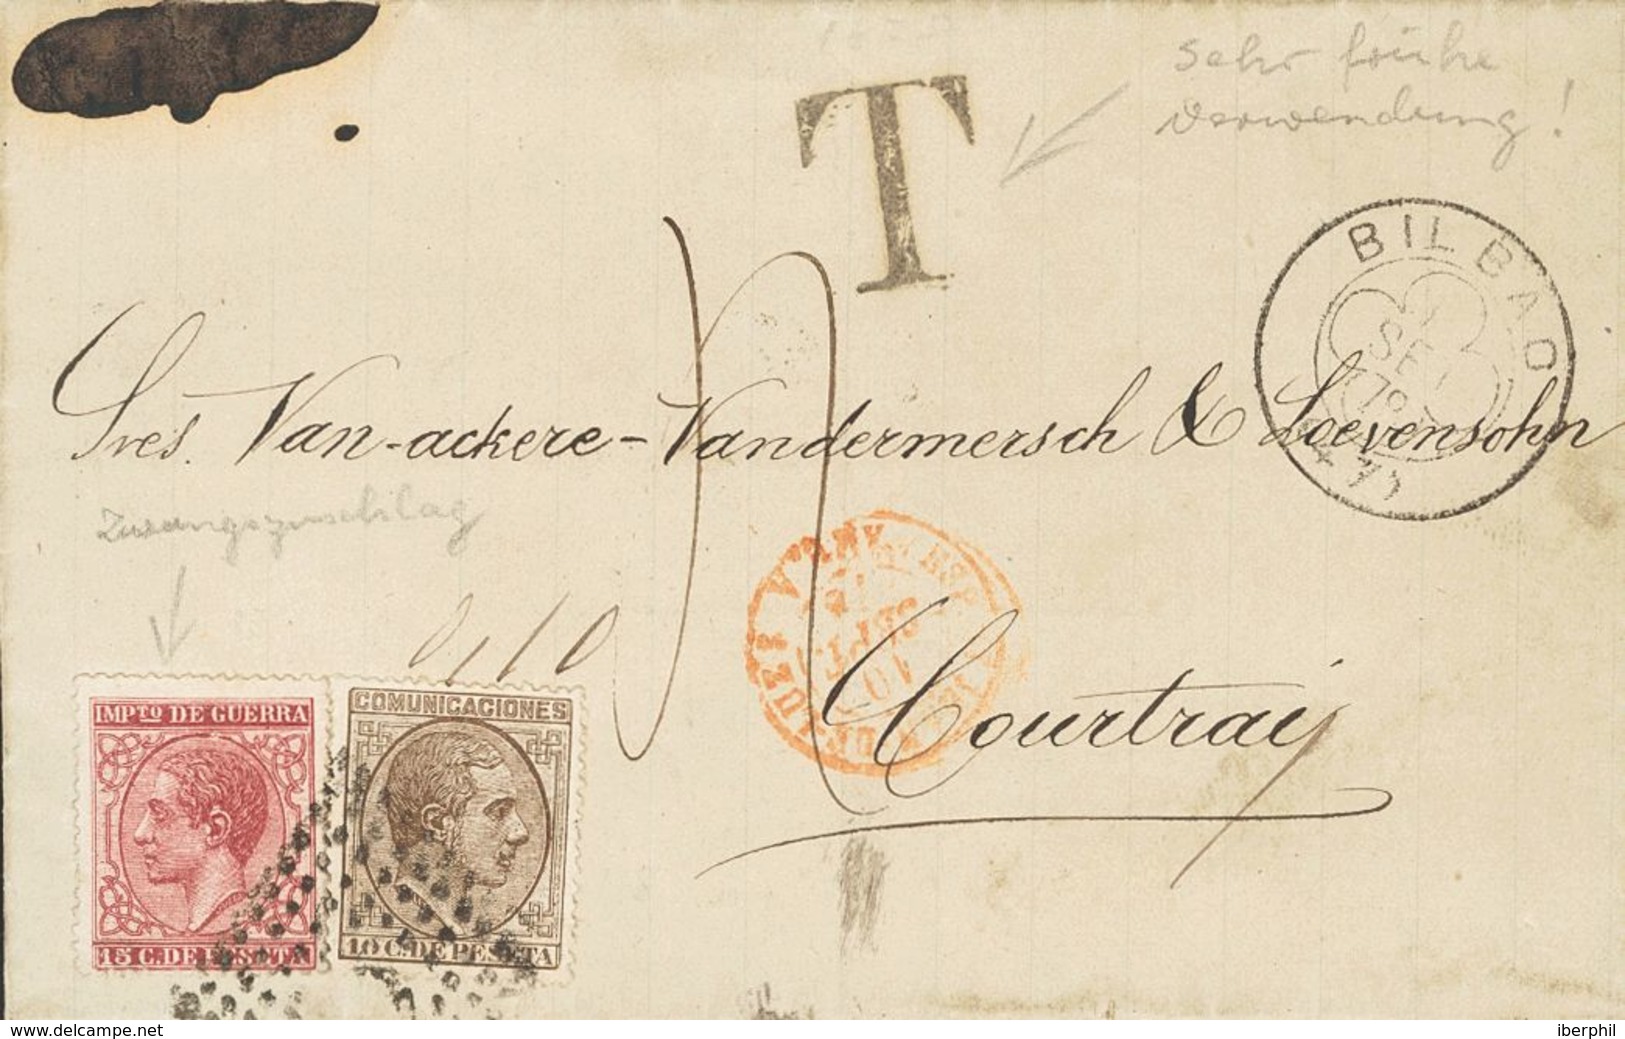 sehr frühe
Verwendung !
T
BILBAO
SET
79
(47)
Sres. Van-ackere-Vandermersch & Loevensohn
Zwangszuschlag
0,10
10
SEPT.
Courtraij
IMPTO DE GUERRA
15 C. DE PESETA
COMUNICACIONES
10 C. DE PESETA
www.delcampe.net
iberphil